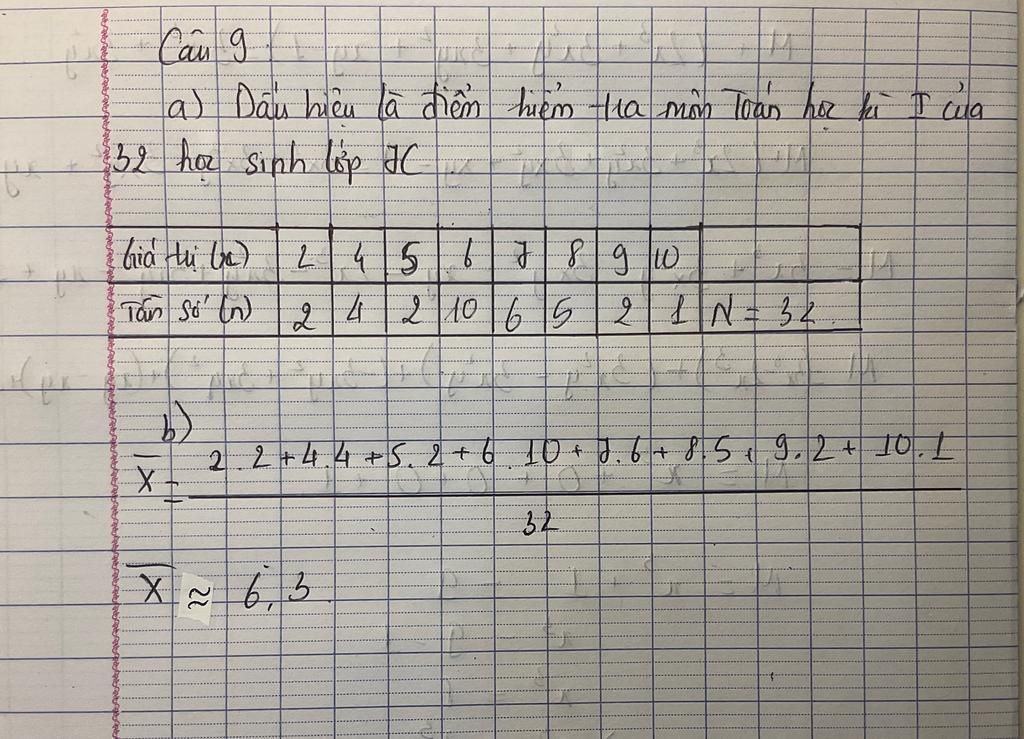 Câu 9
a) Dấu hiệu là điểm kiểm tra môn Toán học kì I của
32 học sinh lớp 7C
Giá trị (x) 2 4 5 6 7 8 9 10
Tần số (n) 2 4 2 10 6 5 2 1 N = 32
b)
X̄ = 2.2 + 4.4 + 5.2 + 6.10 + 7.6 + 8.5 + 9.2 + 10.1
32
X̄ ≈ 6,3